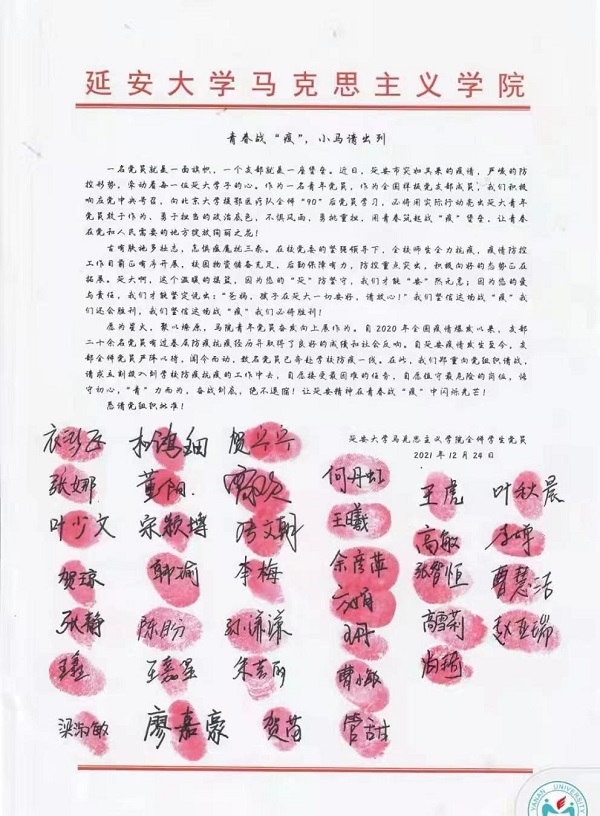 延安大学马克思主义学院
青春战“疫”，小马请出列
一名党员就是一面旗帜，一个支部就是一座堡垒。近日，延安市突如其来的疫情，严峻的防
控形势，牵动着每一位延大学子的心。作为一名青年党员，作为全国样板党支部成员，我们积极
响应党中央号召，向北京大学援鄂医疗队全体“90”后党员学习，必将用实际行动亮出延大青年
党员敢于作为、勇于担当的政治底色，不惧风雨、勇挑重担，用青春筑起战“疫”堡垒，让青春
在党和人民需要的地方绽放绚丽之花！
古有肤施多壮志，怎惧瘟魔扰三秦。在校党委的坚强领导下，全校师生全力抗疫，疫情防控
工作目前已有序开展，校园物资储备充足，后勤保障有力，防控重点突出，积极向好的态势正在
拓展。延大啊，这个温暖的摇篮，因为您的“延”防坚守，我们才能“安”然无恙；因为您的爱
与责任，我们才能坚定说出：“爸妈，孩子在延大一切安好，请放心！”我们坚信这场战“疫”我
们还会胜利，我们坚信这场战“疫”我们必将胜利！
愿为星火，聚以燎原，马院青年党员奋发向上展作为。自2020年全国疫情爆发以来，支部
二十余名党员有过基层防疫抗疫经历并取得了良好的成绩和社会反响。自延安疫情发生至今，支
部全体党员严阵以待，闻令而动，数名党员已奔赴学校防疫一线。在此，我们郑重向党组织请战，
请求立刻投入到学校防疫抗疫的工作中去，自愿接受最困难的任务，自愿值守最危险的岗位，恪
守初心，“青”力而为，奋战到底，绝不退缩！让延安精神在青春战“疫”中闪烁光芒！
恳请党组织批准！
延安大学马克思主义学院全体学生党员
2021年12月24日
张娜 董阳 何丹虹 王虎 叶秋晨
叶少文 宋颖博 王曦 高敏 李婵
贺琼 韩瑜 李梅 余彦萍 张智恒 曹慧洁
张静 陈盼 孙潇潇 王丹 高雪莉 赵亚瑞
王鑫 王磊星 朱芸丽 曹小敏 尚瑜
梁淑敏 廖嘉豪 贺苗 管甜
YANAN UNIVERSITY